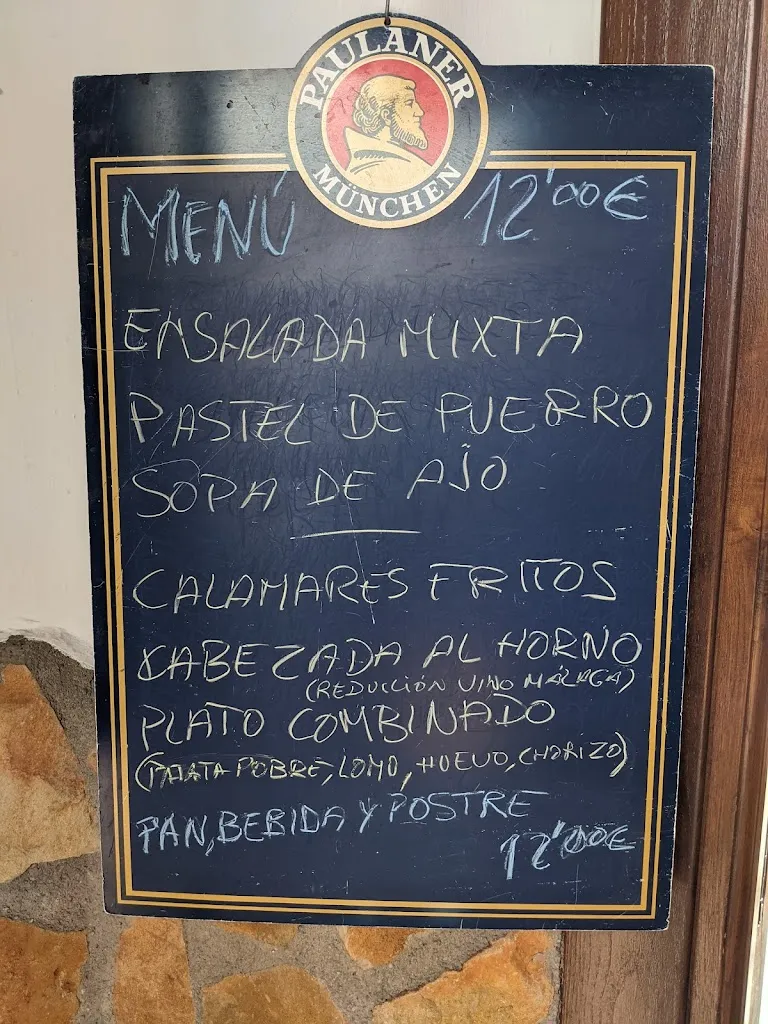 PAULANER
MÜNCHEN
MENÚ 12'00€
ENSALADA MIXTA
PASTEL DE PUERRO
SOPA DE AJO
CALAMARES FRITOS
CABEZADA AL HORNO
(REDUCCIÓN VINO MÁLAGA)
PLATO COMBINADO
(PATATA POBRE, LOMO, HUEVO, CHORIZO)
PAN, BEBIDA Y POSTRE
12'00€